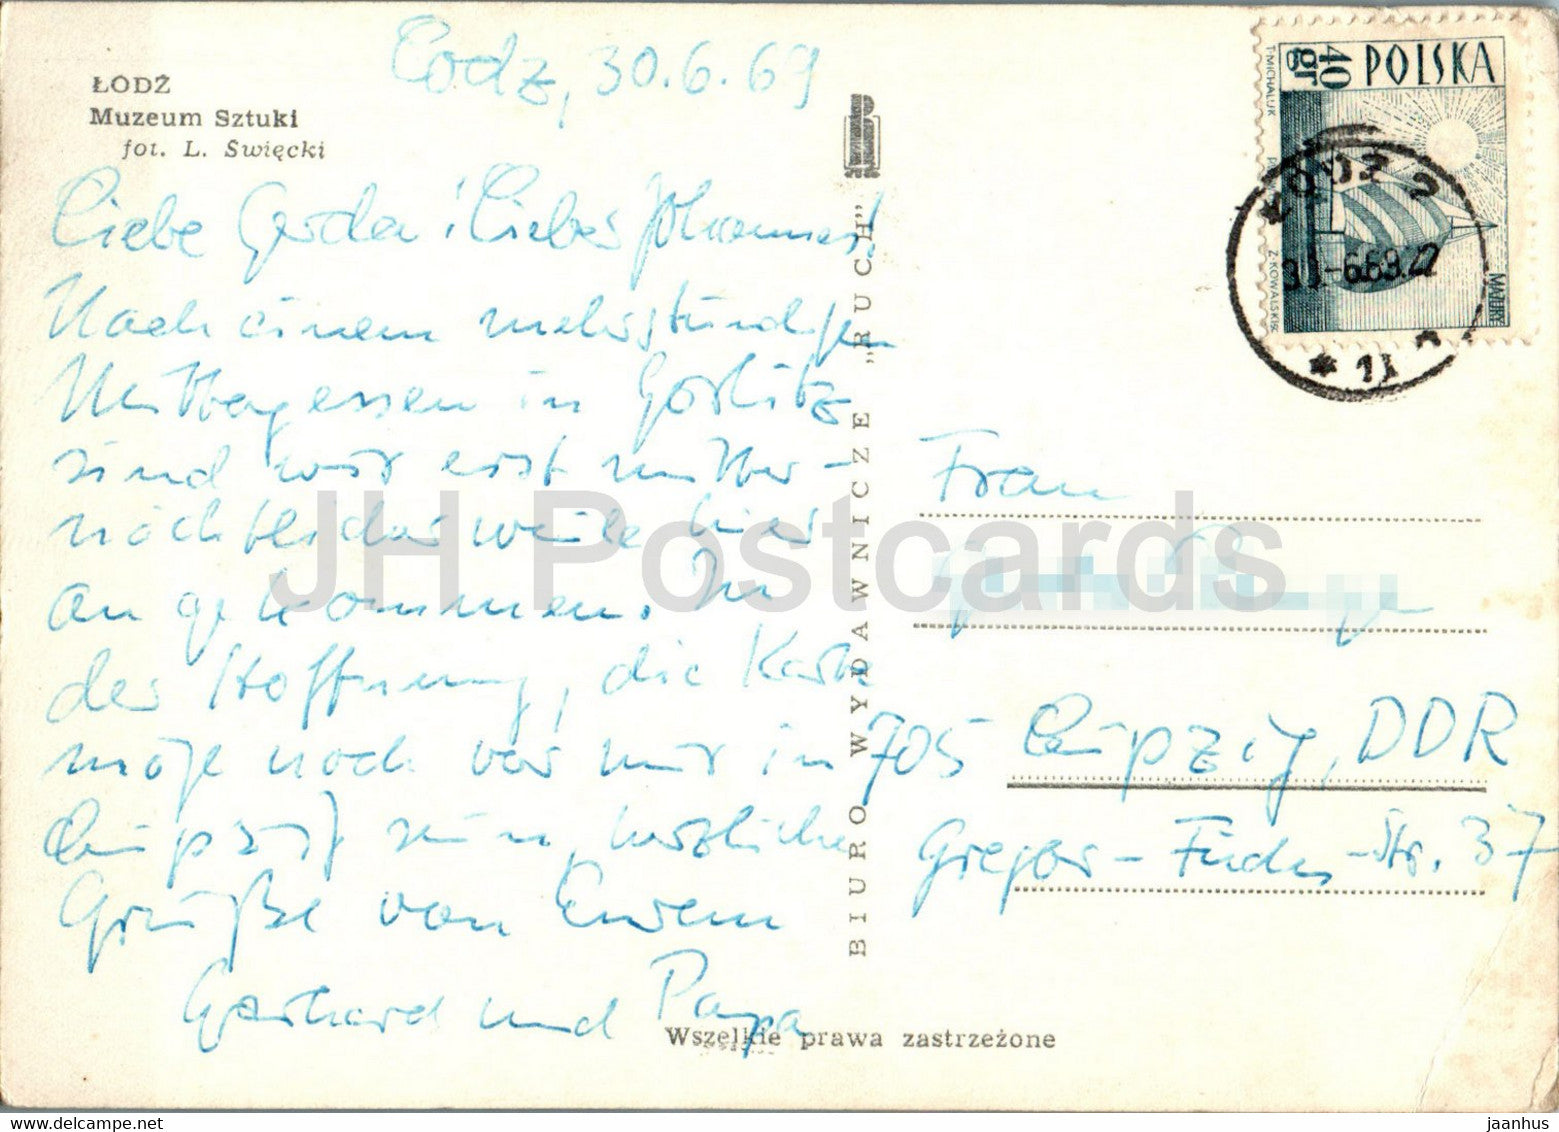 ŁÓDŹ
Muzeum Sztuki
fot. L. Święcki
Lodz, 30.6.69
Liebe Gerda! Lieber Johannes!
Nach einem mehrstündigen
Mittagessen in Görlitz
sind wir erst mitter-
nächtlicherweile hier
angekommen. In
der Hoffnung, die Karte
möge noch vor mir in
Leipzig sein, herzliche
Grüße von Eurem
Gerhard und Papa
BIURO WYDAWNICZE „RUCH"
Wszelkie prawa zastrzeżone
POLSKA
40 gr
T. MICHALUK
Z. KOWALSKI
MAZURY
ŁÓDŹ 2
30.-6.69.22
Frau
705 Leipzig, DDR
Gregor-Fuchs-Str. 37
JH Postcards
jaanhus
www.delcampe.net